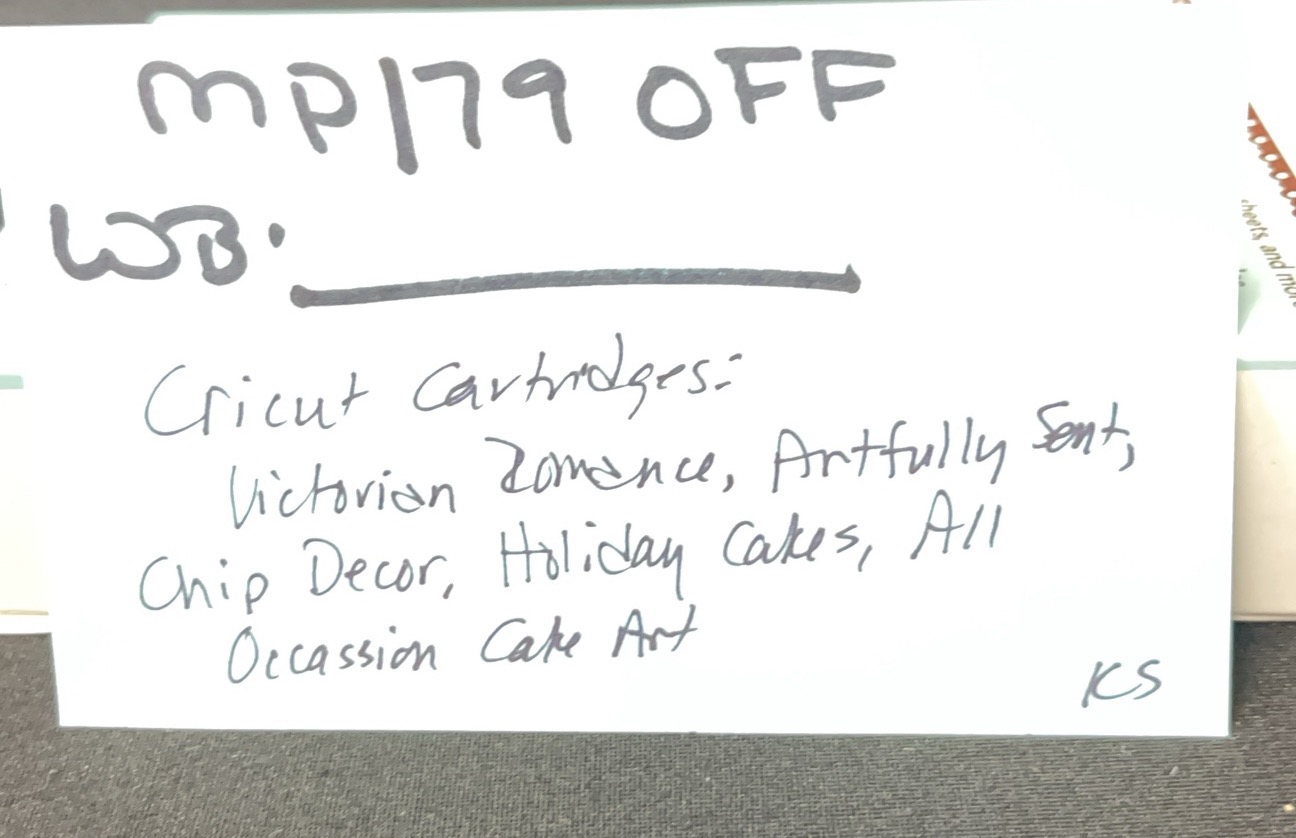 MP179 OFF
WB.
Cricut Cartridges:
Victorian Romance, Artfully Sent,
Chip Decor, Holiday Cakes, All
Occassion Cake Art
KS
heets and mor